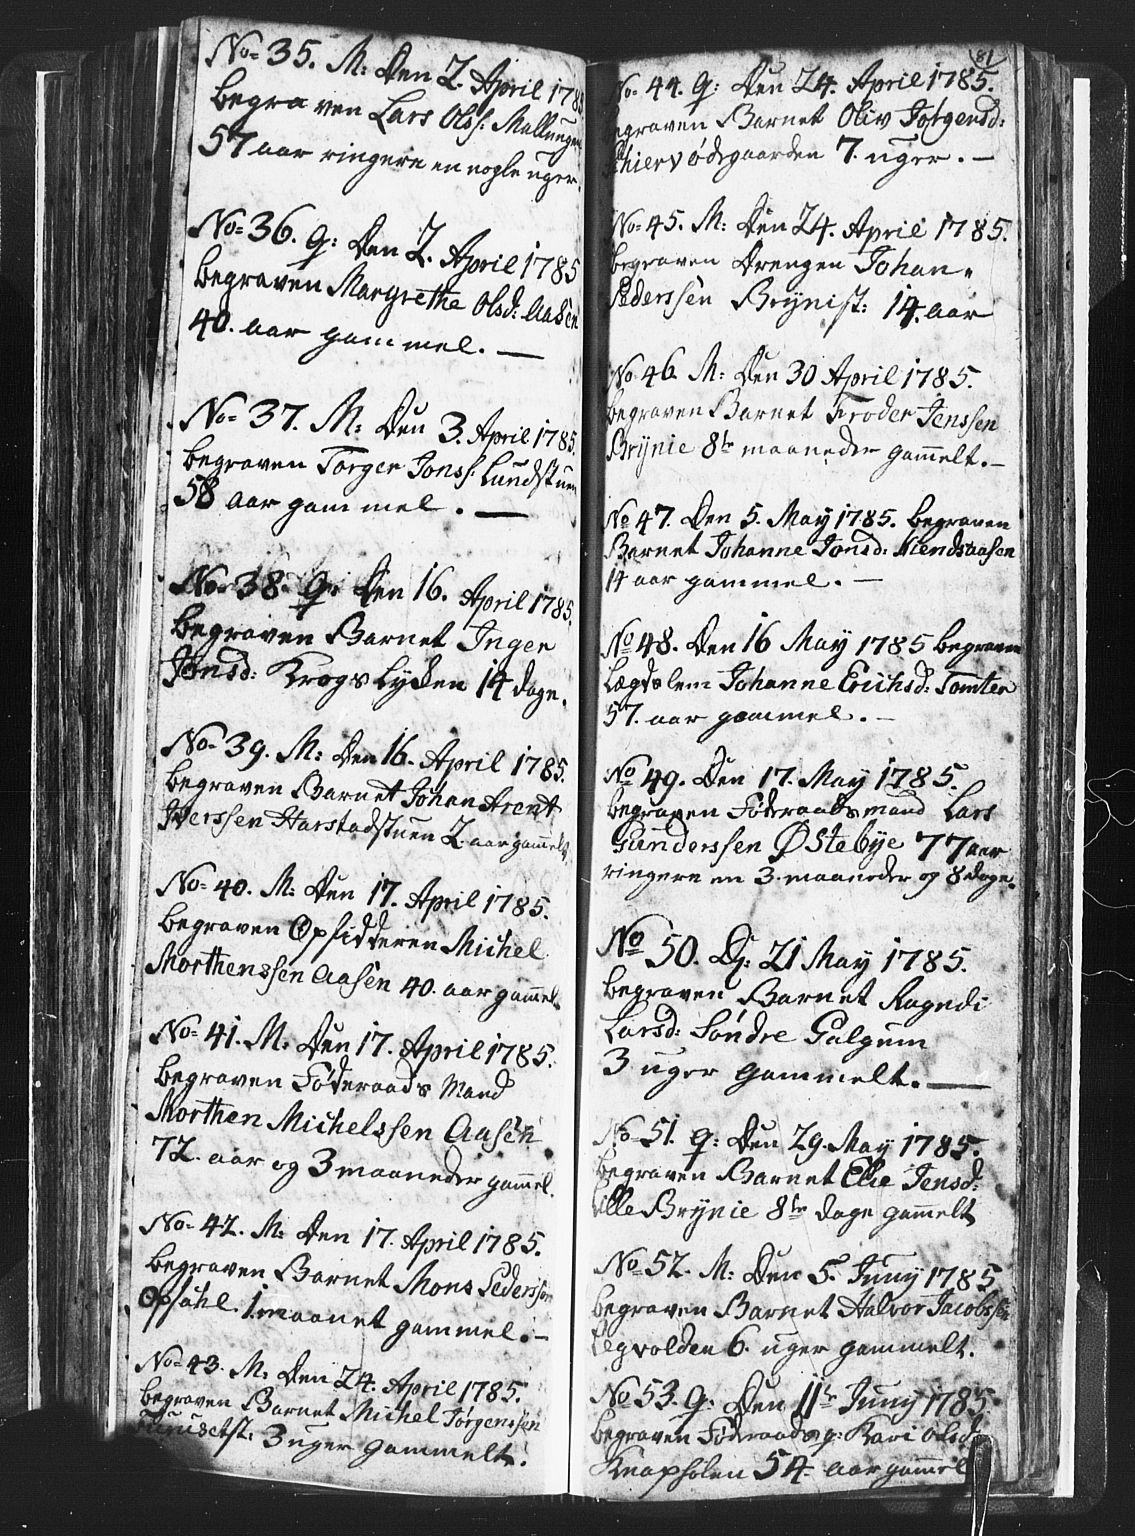 No= 35. M: Den 2. April 1785
begraven Lars Olss: Mallungen
57 aar ringere en nogle uger.
No= 36. q: Den 2. April 1785
begraven Margrethe Olsd: Aasen
40. aar gammel. —
No= 37. M: Den 3. April 1785.
begraven Torger Jonss: Lundstuen
58 aar gammel. —
No= 38. q: Den 16. April 1785.
begraven Barnet Inger
Jonsd: Krogs Lycken 14 dage.
No= 39. M: Den 16. April 1785.
begraven Barnet Johan Arent
Iverssen Harstadstuen 2 aar gam̄elt
No= 40. M: Den 17. April 1785.
begraven Opsidderen Michel
Morthenssen Aasen 40. aar gam̄el
No= 41. M: Den 17. April 1785.
begraven Føderaads Mand
Morthen Michelssen Aasen
72. aar og 3 maaneder gam̄el.
No= 42. M: Den 17. April 1785.
begraven Barnet Mons Pederssen
Opsahl. 1. maanet gammel. —
No= 43. M: Den 24. April 1785.
begraven Barnet Michel Jørgenssen
Furusetst: 3 uger gammelt.
81
No= 44. q: Den 24. April 1785.
begraven Barnet Oliv Jørgensd:
Schiervødsgaarden 7. uger. —
No= 45. M: Den 24. April 1785.
begraven Drengen Johan=
Pederssen Brynist: 14. aar
No 46. M: Den 30 April 1785.
begraven Barnet Froder Jenssen
Brynie 8te maaneder gam̄elt. —
No 47. Den 5. May 1785. begraven
Barnet Johanne Jonsd:
14 aar gammel. —
No 48. Den 16 May 1785 begraven
Lægdslem Johanne Erichsd: Tomter
57. aar gammel. —
No 49. Den 17. May 1785.
begraven Føderaadsmand Lars
Gunderssen Østebye 77 aar
ringere en 3. maaneder og 8 dage.
No 50. D: 21 May 1785.
begraven Barnet Ragndi
Larsd: Søndre Galgum
3 uger gammelt. —
No= 51. q: Den 29. May 1785.
begraven Barnet Elie Jensd:
lille Brynie 8te dage gam̄elt
No= 52. M: Den 5. Juny 1785
begraven Barnet Halvor Jacobssen
Legvolden 6. uger gammelt.
No 53. q: Den 11te Juny 1785
begraven Føderaads q: Kari Olsd:
Knapholen 54. aar gam̄el